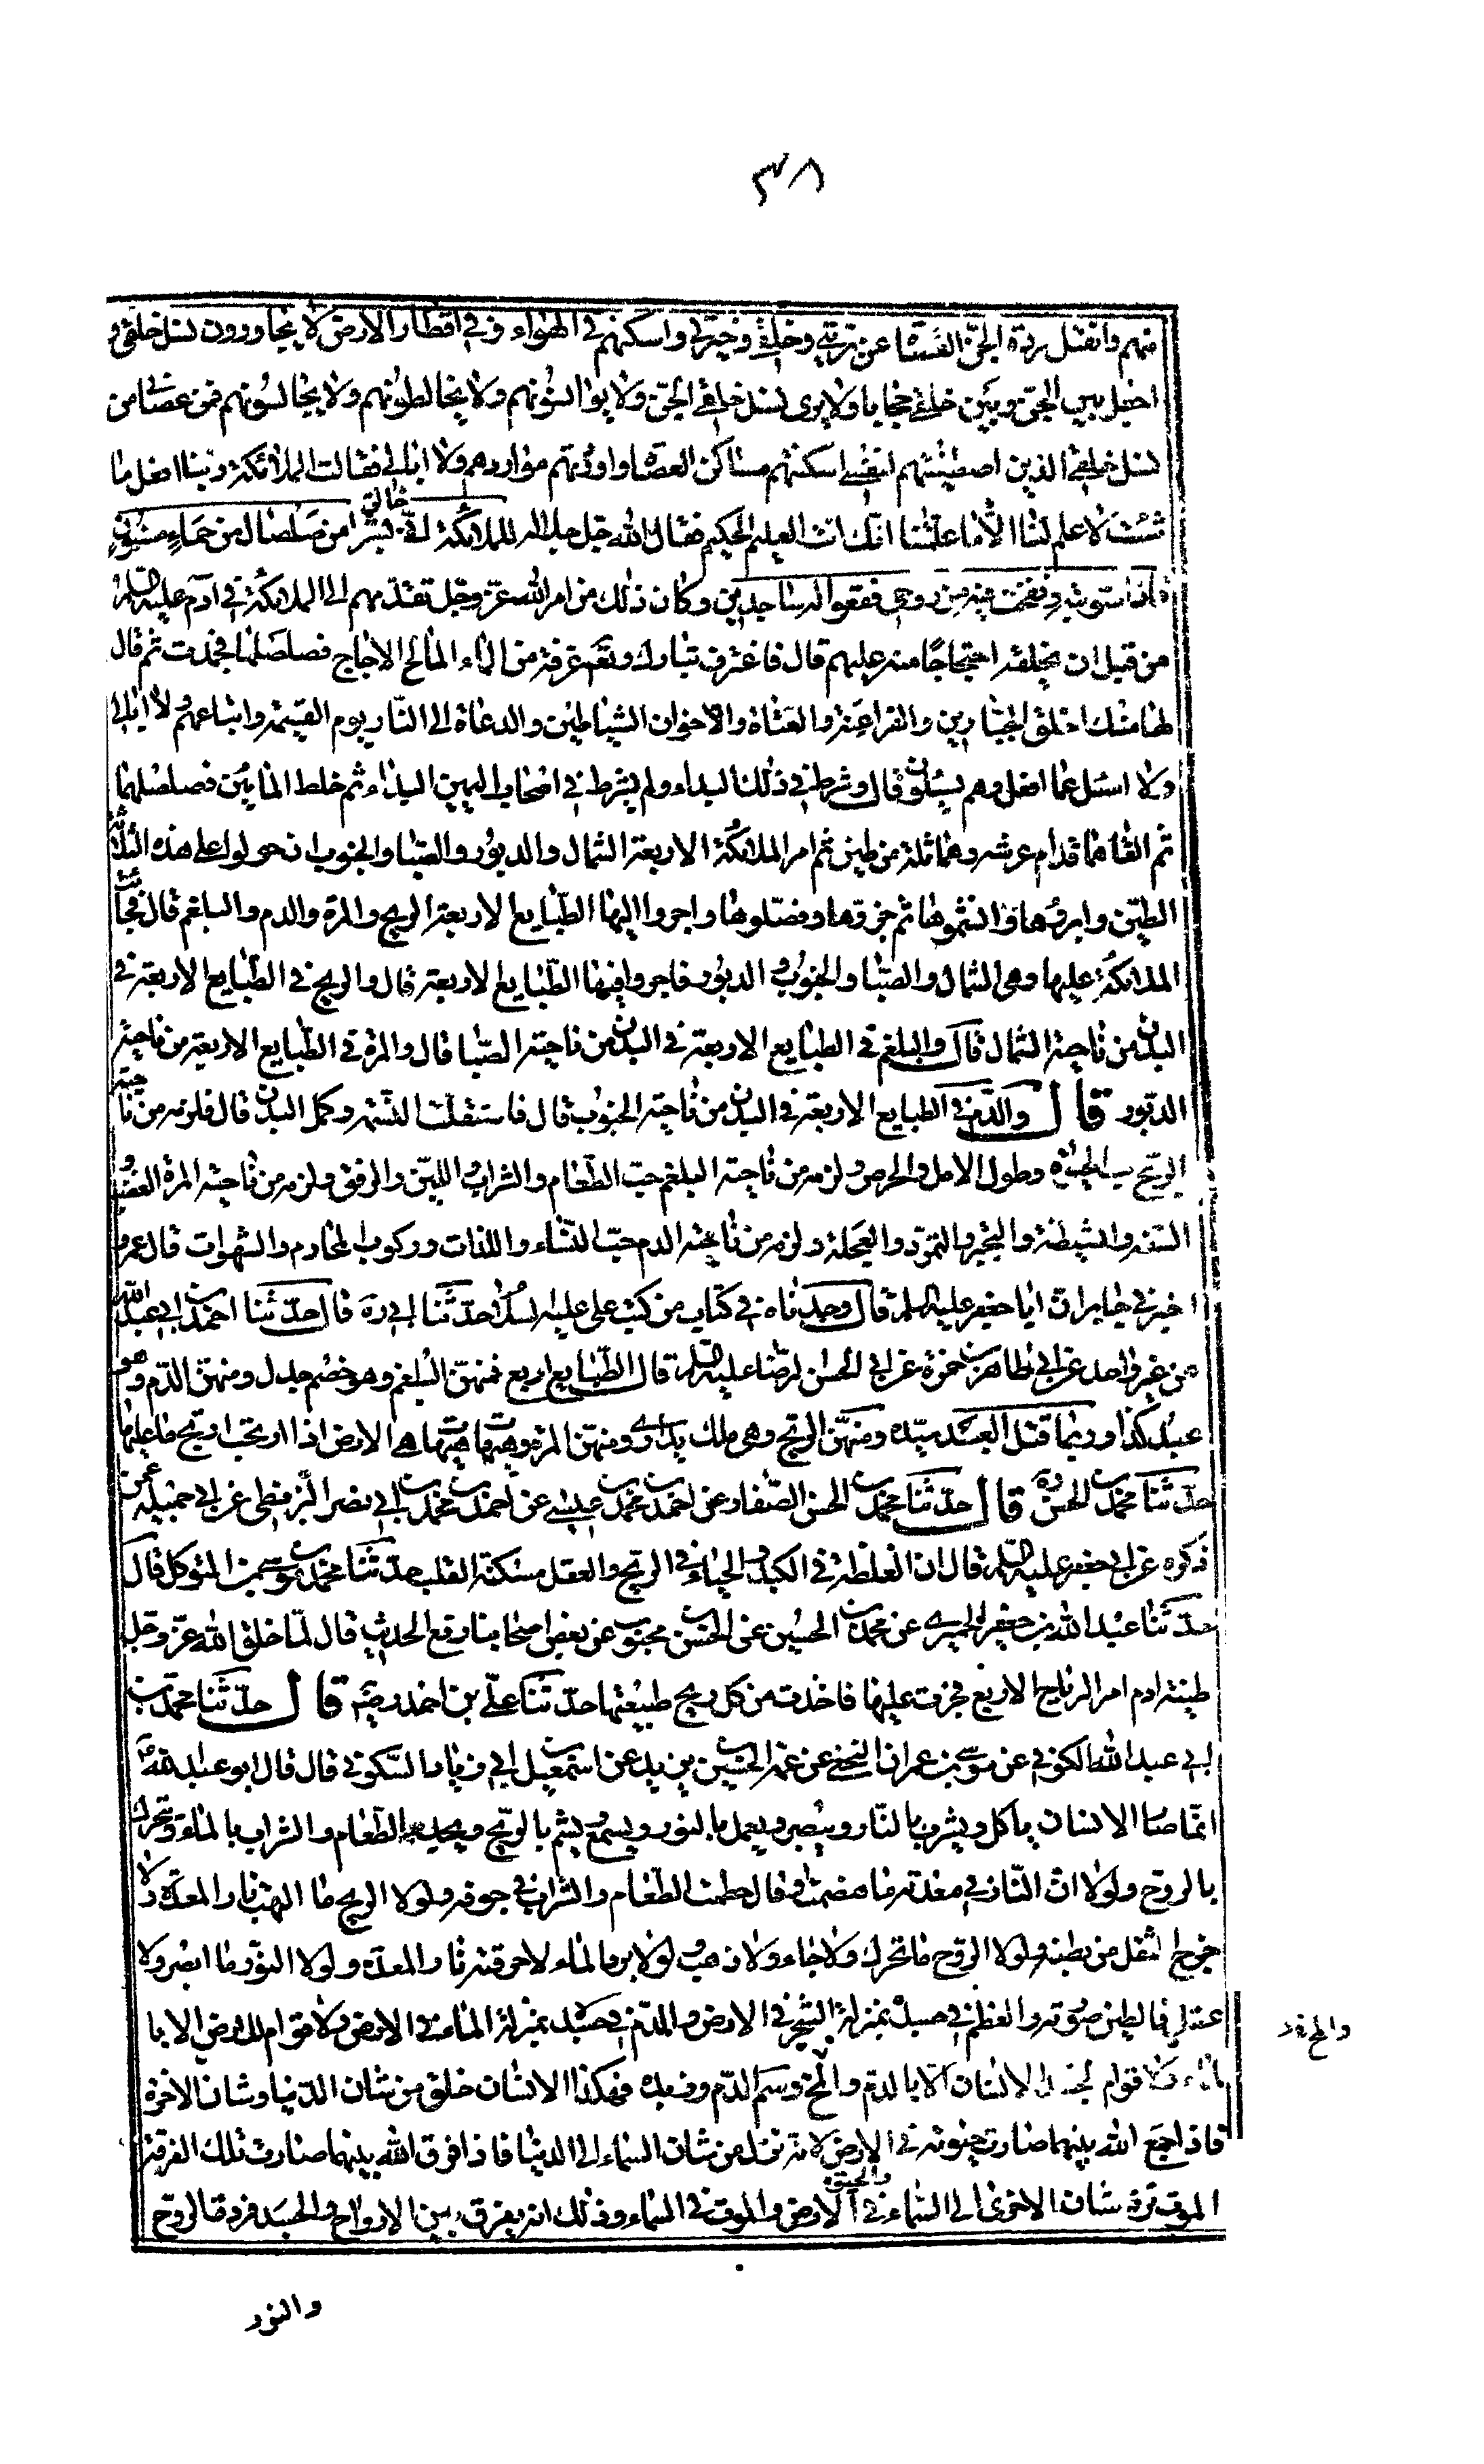 ٣٨
منهم وانقل مردة الجن العصاة عن بريتي وخلقي وخيرتي واسكنهم في الهواء وفي اقطار الارض لا يجاورون نسل خلقي و
اجعل بين الجن وبين خلقي حجابا ولا يرى نسل خلقي الجن ولا يوانسونهم ولا يخالطونهم ولا يجالسونهم فمن عصاني من
نسل خلقي الذين اصطفيتهم لنفسي اسكنتهم مساكن العصاة واوردتهم مواردهم ولا ابالي فقالت الملائكة ربنا افعل ما
شئت لا علم لنا الا ما علمتنا انك انت العليم الحكيم فقال الله جل جلاله للملائكة اني خالق بشرا من صلصال من حماء مسنون
فاذا سويته ونفخت فيه من روحي فقعوا له ساجدين وكان ذلك من امر الله عز وجل تقدم منهم الى الملائكة في آدم عليه السلام
من قبل ان يخلقه احتجاجا منه عليهم قال فاغترف تبارك وتعالى غرفة من الماء المالح الاجاج فصلصلها فجمدت ثم قال
لها منك اخلق الجبارين والفراعنة والعتاة والاخوان الشياطين والدعاة الى النار يوم القيمة واتباعهم ولا ابالي
ولا اسئل عما افعل وهم يسئلون قال وشرط في ذلك البداء ولم يشرط في اصحاب اليمين البداء ثم خلط المائين فصلصلهما
ثم القاهما قدام عرشه وهما ثلة من طين ثم امر الملائكة الاربعة الشمال والدبور والصبا والجنوب ان جولوا على هذه الثلة
الطين وابرؤها وانسموها ثم جزوها وفصلوها واجروا اليها الطبايع الاربعة الريح والمرة والدم والبلغم قال فجالت
الملائكة عليها وهي الشمال والصبا والجنوب والدبور فاجروا فيها الطبايع الاربعة قال والريح في الطبايع الاربعة في
البدن من ناحية الشمال قال والبلغم في الطبايع الاربعة في البدن من ناحية الصبا قال والمرة في الطبايع الاربعة من ناحية
الدبور قال والدم في الطبايع الاربعة في البدن من ناحية الجنوب قال فاستقلت النسمة وكمل البدن قال فلزمه من ناحية
الريح حب الحيوة وطول الامل والحرص ولزمه من ناحية البلغم حب الطعام والشراب واللين والرفق ولزمه من ناحية المرة الغضب و
السفه والشيطنة والتجبر والتمرد والعجلة ولزمه من ناحية الدم حب النساء واللذات وركوب المحارم والشهوات قال عمرو
اخبرني جابر ان ابا جعفر عليه السلام قال وجدناه في كتاب من كتب علي عليه السلام حدثنا ابي ره قال حدثنا احمد بن ابي عبد الله
عن غير واحد عن ابي طاهر بن حمزة عن ابي الحسن الرضا عليه السلام قال الطبايع اربع فمنهن البلغم وهو خصم جدل ومنهن الدم وهو
عبد كذا وربما قتل العبد سيده ومنهن الريح وهي ملك يدارى ومنهن المرة وهيهات هيهات هي الارض اذا ارتجت ارتج ما عليها
حدثنا محمد بن الحسن ره قال حدثنا محمد بن الحسن الصفار عن احمد بن محمد بن عيسى عن احمد بن محمد بن ابي نصر البزنطي عن ابي جميلة عمن
ذكره عن ابي جعفر عليه السلام قال ان الغلظة في الكبد والحياء في الريح والعقل مسكنه القلب حدثنا محمد بن موسى بن المتوكل قال
حدثنا عبد الله بن جعفر الحميري عن محمد بن الحسين عن الحسن بن محبوب عن بعض اصحابنا رفع الحديث قال لما خلق الله عز وجل
طينة ادم امر الرياح الاربع فجرت عليها فاخذت من كل ريح طبيعتها حدثنا علي بن احمد رضه قال حدثنا محمد بن
ابي عبد الله الكوفي عن موسى بن عمران النخعي عن عمه الحسين بن يزيد عن اسمعيل بن ابي زياد السكوني قال قال ابو عبد الله ع
انما صار الانسان ياكل ويشرب بالنار ويبصر ويعمل بالنور ويسمع ويشم بالريح ويجد الطعام والشراب بالماء ويتحرك
بالروح ولولا ان النار في معدته ما هضمت او قال حطمت الطعام والشراب في جوفه ولولا الريح ما التهب نار المعدة ولا
خرج الثفل من بطنه ولولا الروح ما تحرك ولا جاء ولا ذهب لولا برد الماء لاحرقته نار المعدة ولولا النور ما ابصر ولا
عقل فالطين صورته والعظم في جسده بمنزلة الشجر في الارض والدم في جسده بمنزلة الماء في الارض ولا قوام للارض الا با
لماء ولا قوام لجسد الانسان الا بالدم والمخ دسم الدم وزبده فهكذا الانسان خلق من شان الدنيا وشان الاخرة
فاذا جمع الله بينهما صارت حيوته في الارض لانه نزل من شان السماء الى الدنيا فاذا فرق الله بينهما صارت تلك الفرقة
الموت ترد شان الاخرى الى السماء فالحيوة في الارض والموت في السماء وذلك انه يفرق بين الارواح والجسد فردت الروح
والنور